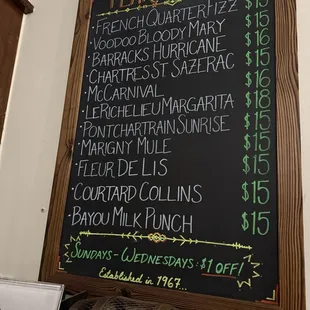 - FRENCH QUARTER FIZZ $15
- VOODOO BLOODY MARY $15
- BARRACKS HURRICANE $16
- CHARTRES ST SAZERAC $15
- MCCARNIVAL $16
- LERICHELIEU MARGARITA $18
- PONTCHARTRAIN SUNRISE $15
- MARIGNY MULE $15
- FLEUR DE LIS $15
- COURTARD COLLINS $15
- BAYOU MILK PUNCH $15
SUNDAYS - WEDNESDAYS: $1 OFF!
Established in 1967...